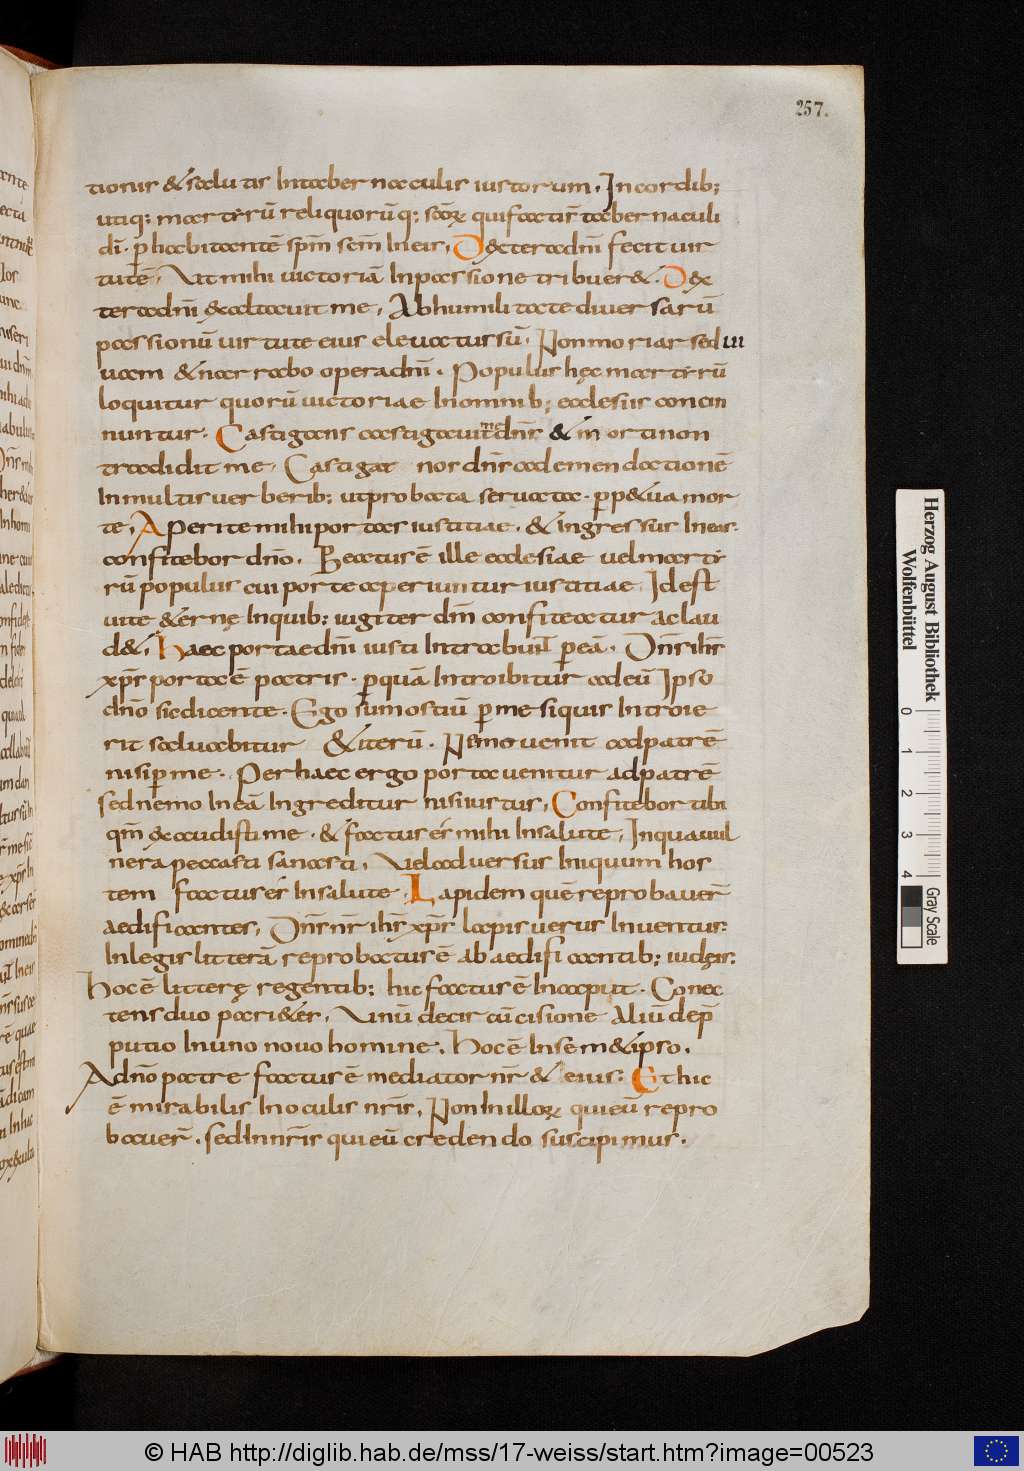 257.
tionis & salutis In tabernaculis iustorum. In cordib;
utiq; martirū reliquorūq; scōꝝ qui facti sr̄ tabernaculi
dī. ꝑ habitantē sp̄m sc̄m In eis. Dextera dn̄i fecit uir
tutē. Ut mihi uictoriā In passione tribuer&. Dex
tera dn̄i exaltauit me. Ab humilitate diuersarū
passionū uirtute eius eleuatus sū. Non moriar sed ui
uam & narrabo opera dn̄i. Populus hęc martirū
loquitur quorū uictoriae In omnib; ecclesiis concin
nuntur. Castigans castigauit me dn̄s & morti non
tradidit me. Castigat nos dn̄s ad emendationē
In multis uerberib; ut probata seruata. ꝑp&ua mor
te. Aperite mihi portas iustitiae. & ingressus In eas.
confitebor dn̄o. Beatus ē ille ecclesiae uel marti
rū populus cui porte aperiuntur iustitiae. Id est
uite & ērnę In quib; iugiter dn̄m confiteatur ac lau
d&. Haec porta e dn̄i iusti Intrabunt ꝑ eā. Dn̄s ih̄s
xp̄s porta ē patris. ꝑ quā Introibitur ad eū Ipso
dn̄o sic dicente. Ego sum ostiū ꝑ me si quis Introie
rit saluabitur & iterū. Nemo uenit ad patrē
nisi ꝑ me. Per haec ergo porta uenitur ad patrē
sed nemo In eā Ingreditur nisi iustus. Confitebor tibi
qm̄ exaudisti me. & factus es mihi In salute. In qua uul
nera peccati sanasti. Uel aduersus Iniquum hos
tem factus es In salute. Lapidem quē reprobauer̄
aedificantes. Dn̄s nr̄ ih̄s xp̄s lapis uerus Inuentus.
In legis litterā reprobatus ē ab aedificantib; iudęis.
Hoc ē litterę regentib; hic factus ē In caput. Conec
tens duo pari&es. Unū decircūcisione Aliū de p̄
putio In uno nouo homine. Hoc ē In sem& ipso.
A dn̄o patre factus ē mediator nr̄ & eius. Et hic
ē mirabilis In oculis nr̄is. Non In illoꝝ qui eū repro
bauer̄. sed In nr̄is qui eū credendo suscipimus.
Herzog August Bibliothek
Wolfenbüttel
0 1 2 3 4
Gray Scale
© HAB http://diglib.hab.de/mss/17-weiss/start.htm?image=00523